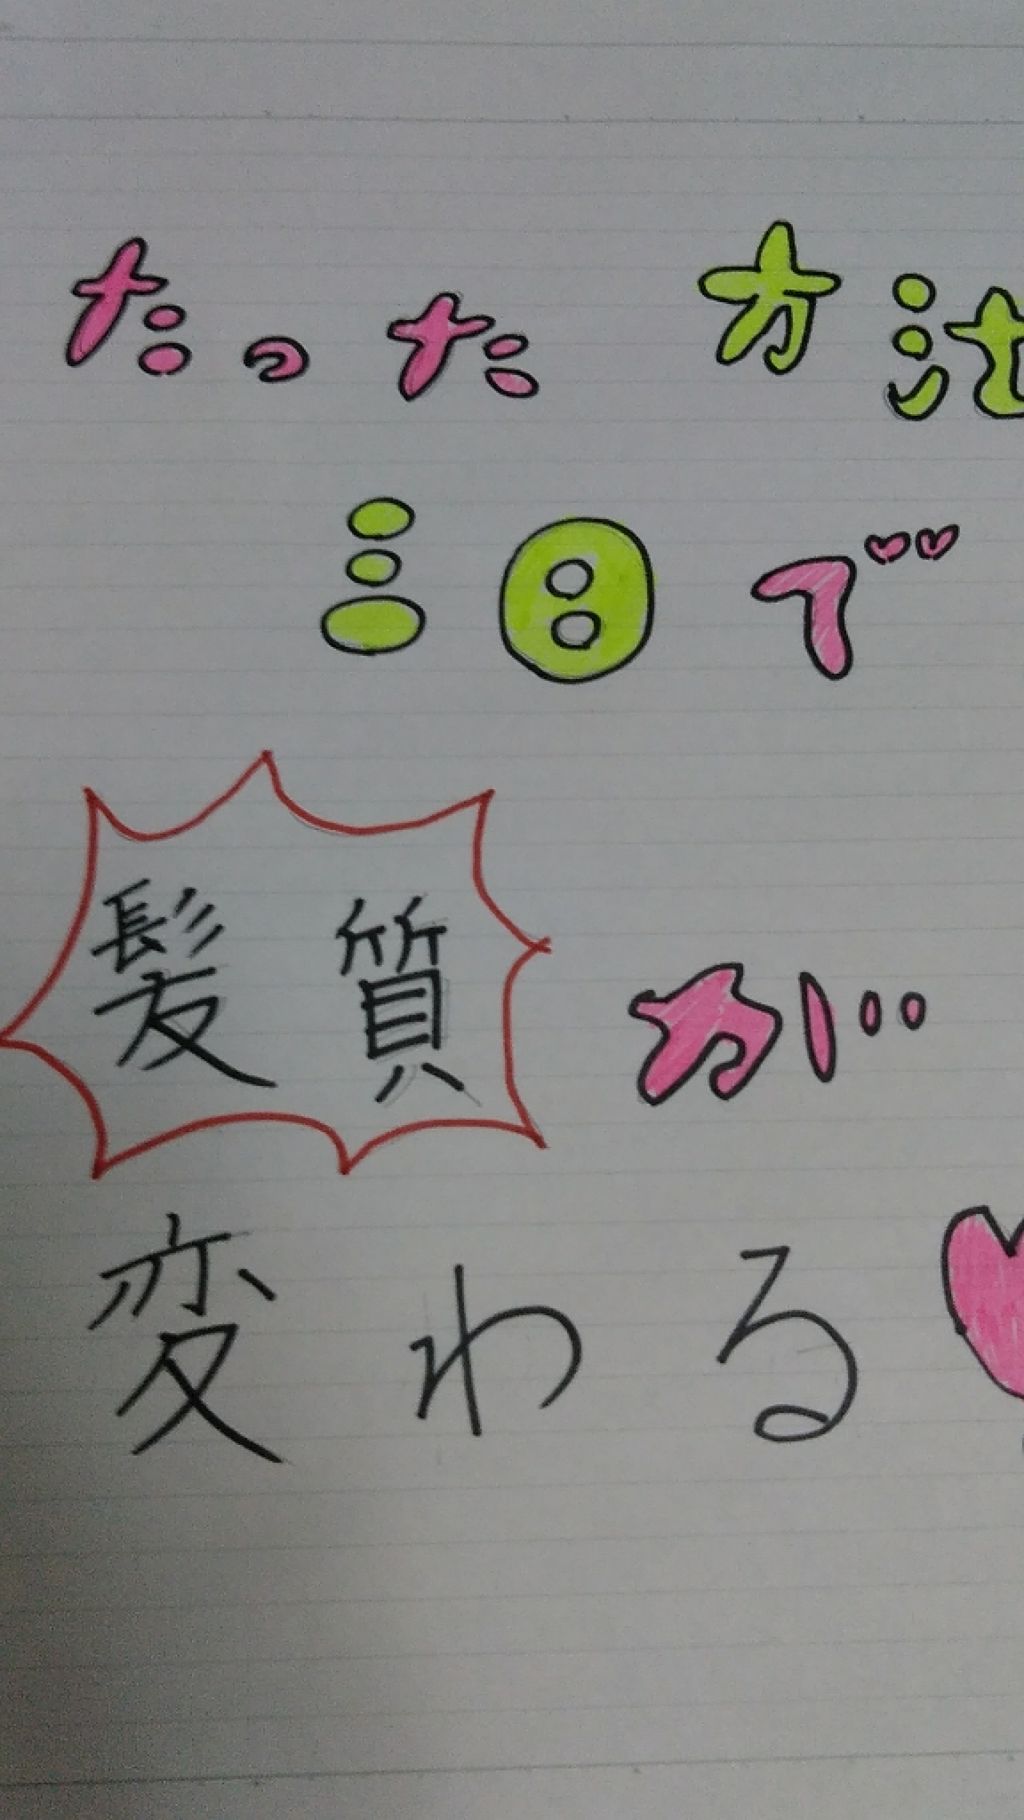 たった 方法
三日で
髪質が
変わる